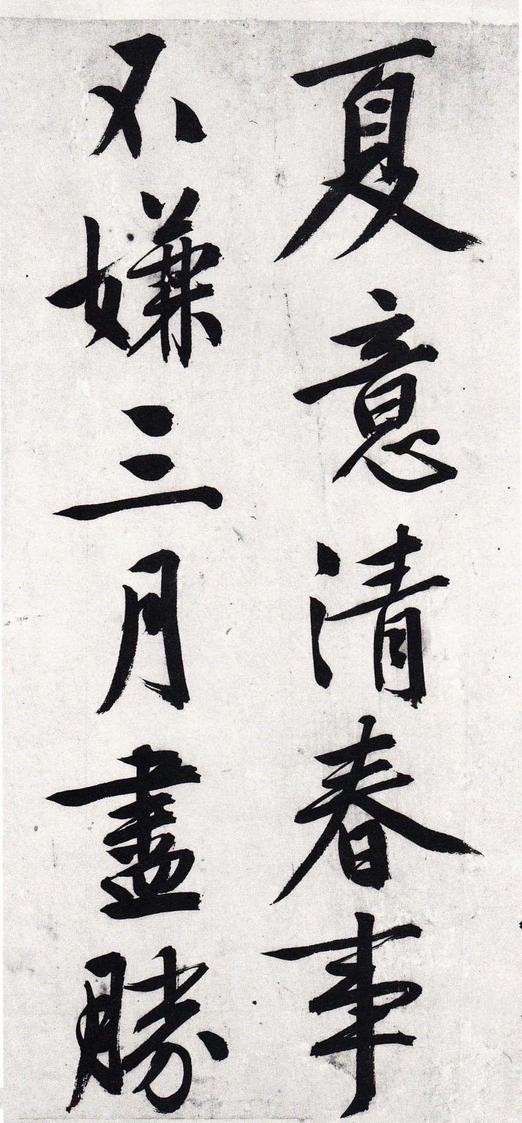 夏意清春事
不嫌三月盡勝